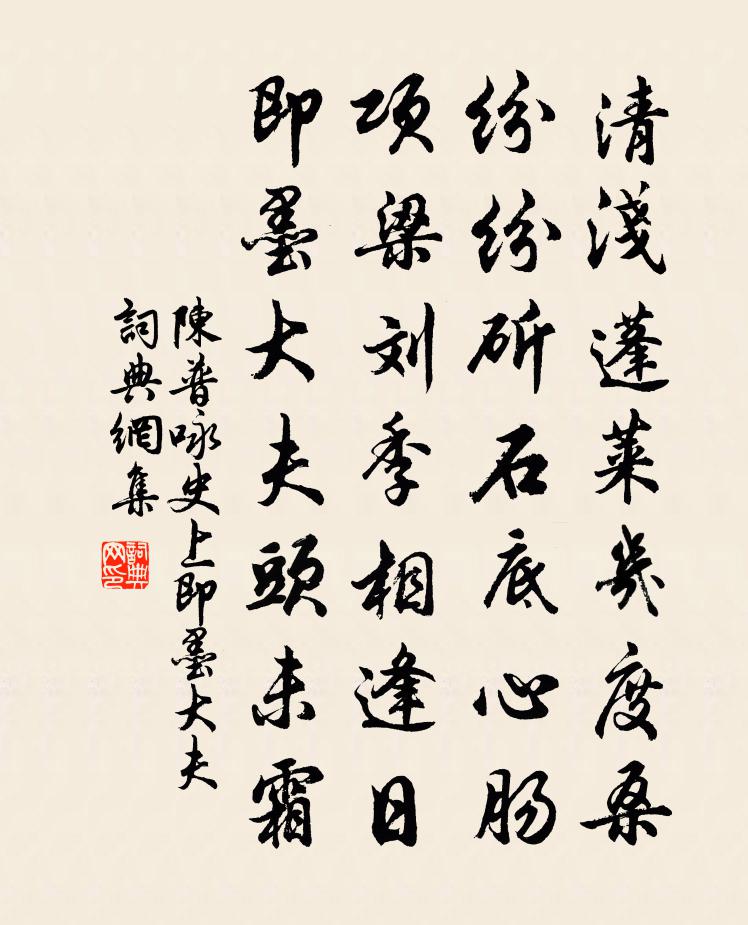 清淺蓬萊幾度桑
紛紛斫石底心腸
项梁刘季相逢日
即墨大夫頭未霜
陳普咏史上即墨大夫
詞典網集
詞典网印